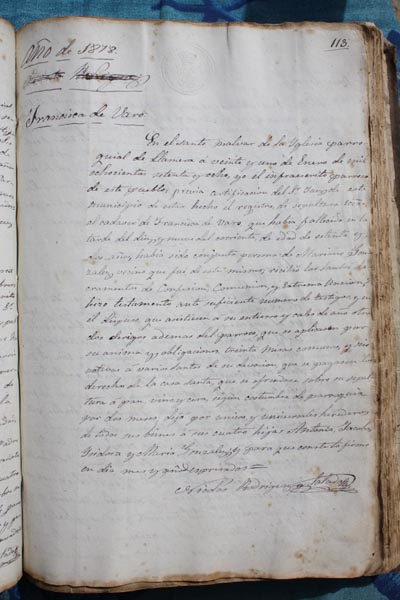 113.
Año de 1878.
Francisca de Varo
En el Santo malvar de la Yglesia parro
quial de Llamera á veinte y uno de Enero de mil
ochocientos setenta y ocho, yo el infraescrito parroco
de este pueblo, previa certificacion del Sr. Encargado
municipio de estar hecho el registro, di sepultura
el cadaver de Francisca de Varo que había fallecido en la
tarde del diez y nueve del corriente, de edad de setenta y
dos años, había sido conjunta persona de Mariano Gon
zalez, vecino que fue de este mismo, recibió los Santos Sa
cramentos de Confesion, Comunion, y Extrema Uncion,
hizo testamento ante suficiente numero de testigos, y en
el dispuso, que asistiesen a su entierro y cabo de año otros
dos clerigos ademas del parroco, que se aplicasen por
su anima y obligaciones treinta misas comunes, y seis
votivas a varios Santos de su devocion, que se pagasen los
derechos de la casa Santa, que se ofrendase sobre su sepul
tura a pan, vino, y cera, segun costumbre de parroquia
por dos meses, dejó por unicos, y universales herederos
de todos sus bienes a sus cuatro hijas Antonia, Jacoba,
Ysidora y Maria Gonzalez, y para que conste lo firmo
en dia mes y año espresados =
Nicolas Rodriguez